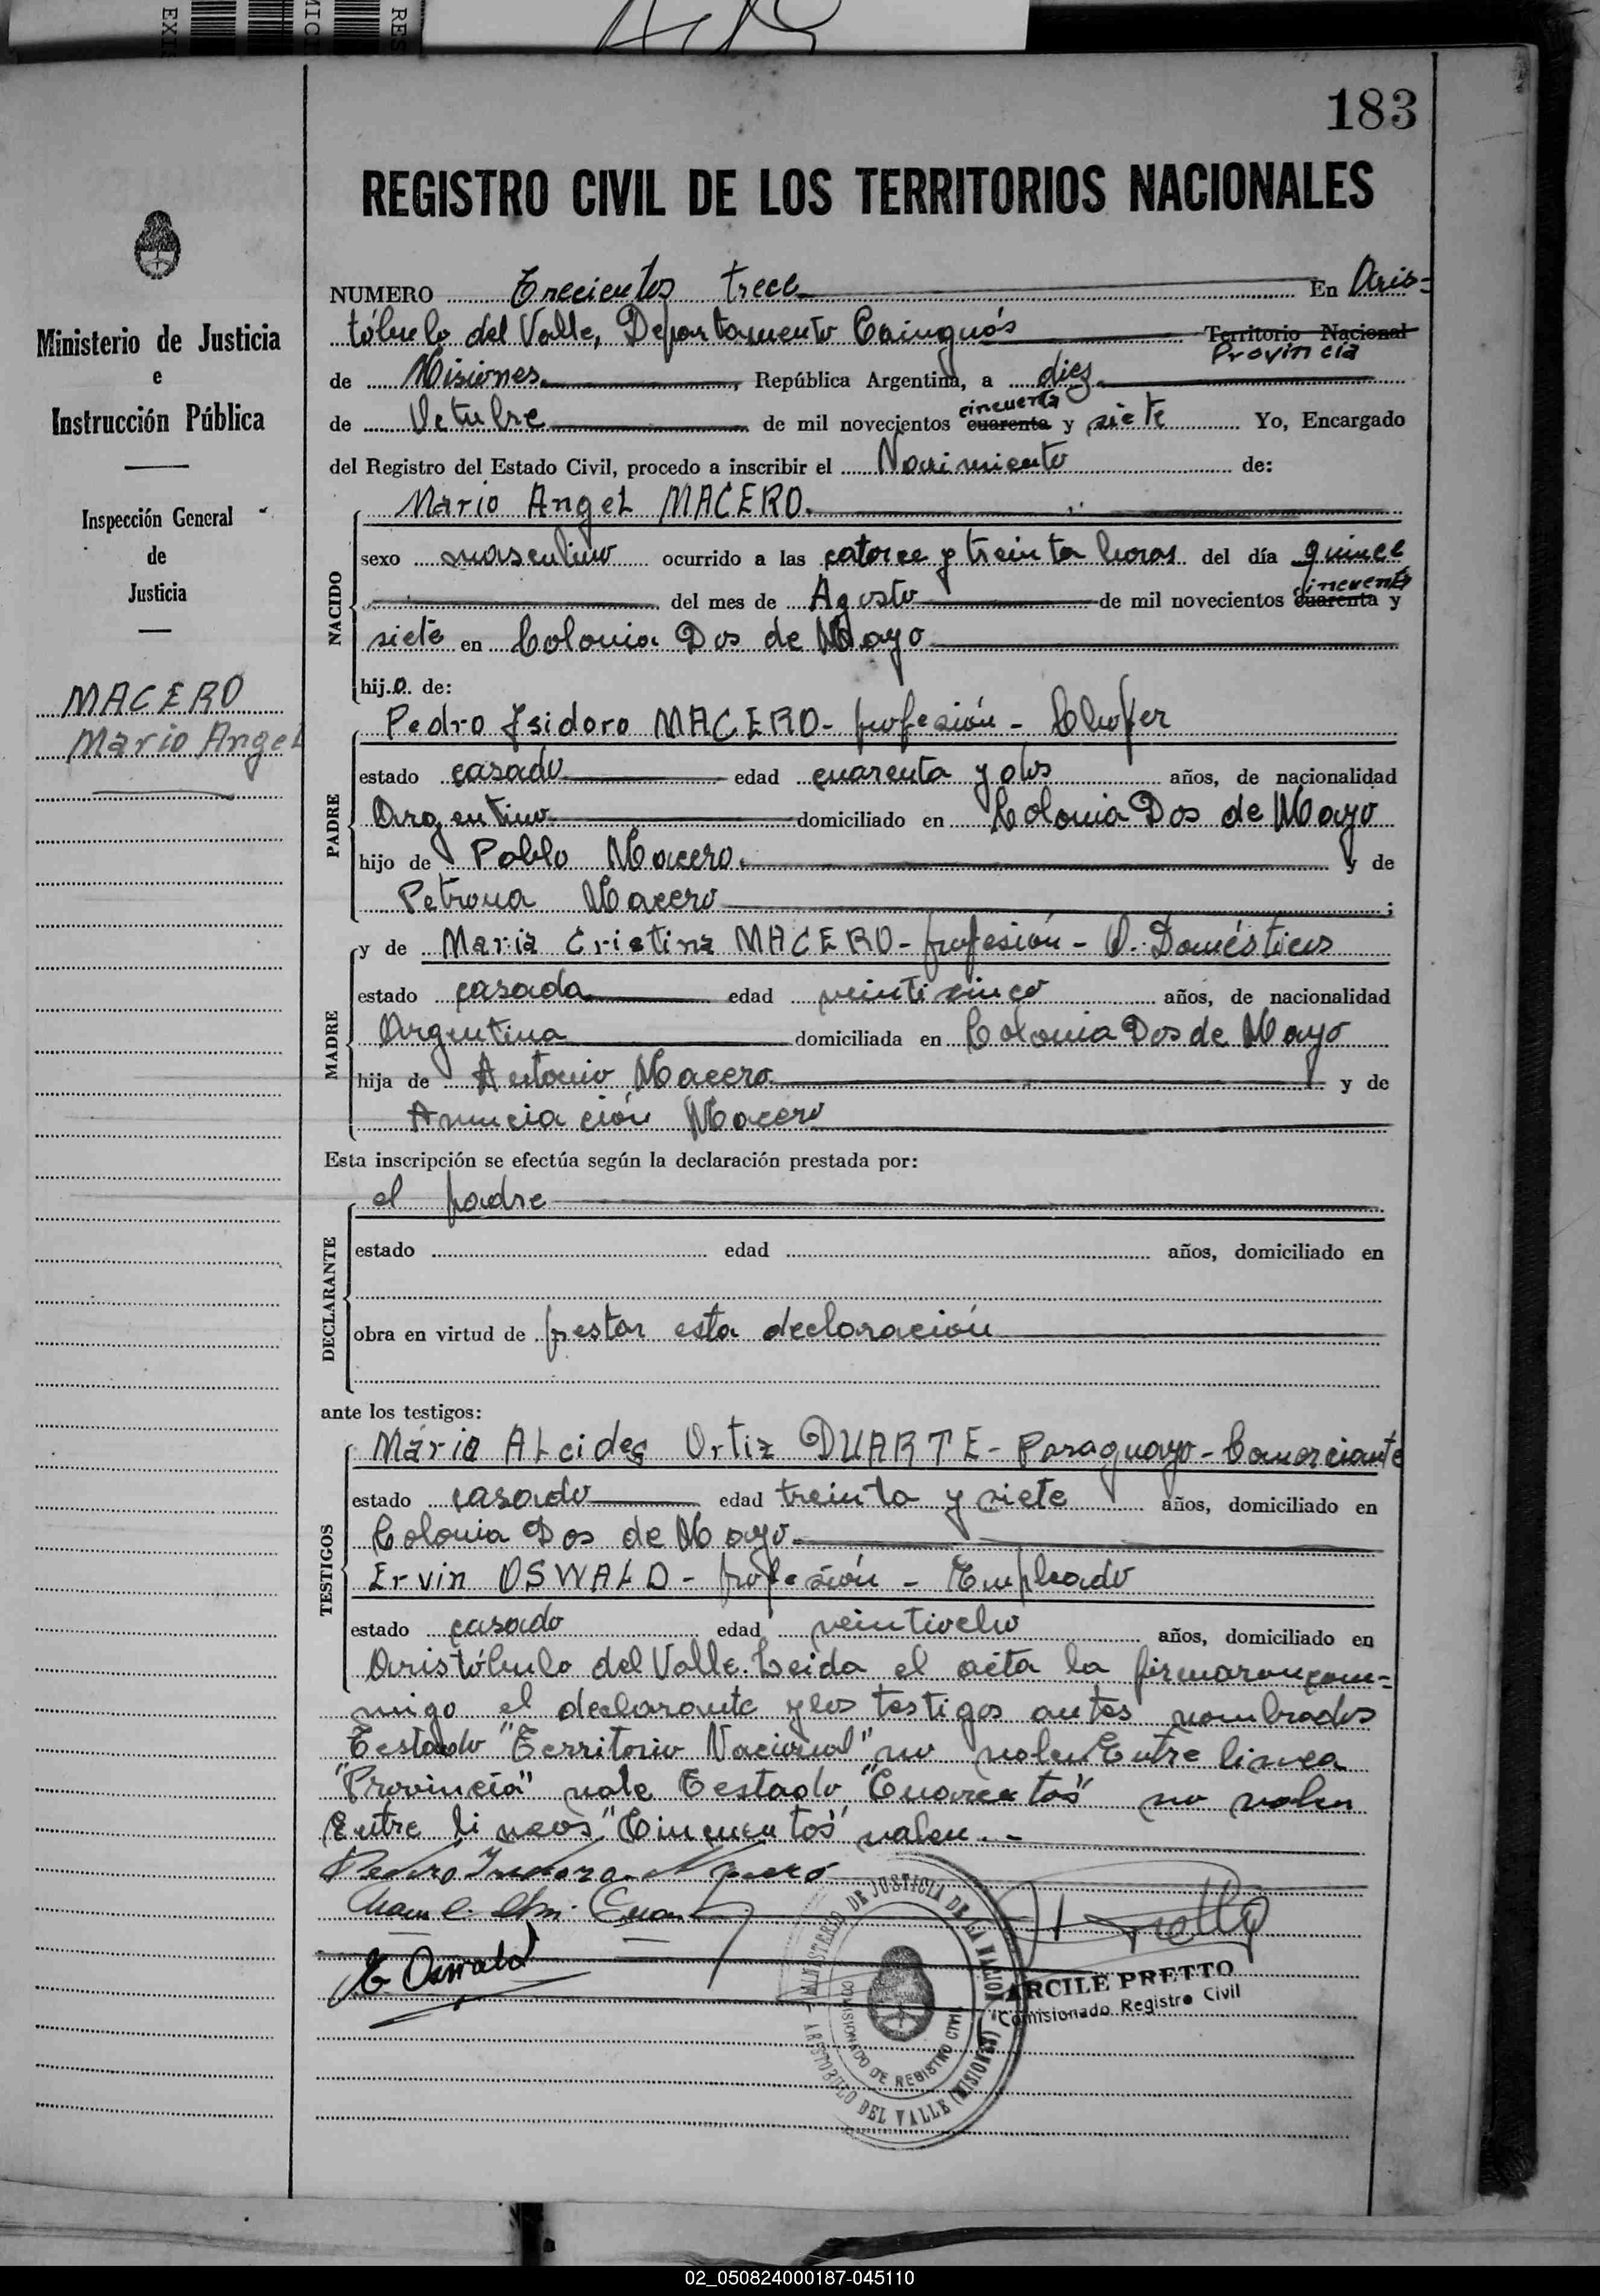 183
REGISTRO CIVIL DE LOS TERRITORIOS NACIONALES
Ministerio de Justicia
e
Instrucción Pública
Inspección General
de
Justicia
MACERO
Mario Angel
NUMERO Trecientos trece En Aris=
tóbulo del Valle, Departamento Cainguás Territorio Nacional
Provincia
de Misiones, República Argentina, a diez
cincuenta
de Octubre de mil novecientos cuarenta y siete Yo, Encargado
del Registro del Estado Civil, procedo a inscribir el Nacimiento de:
NACIDO
Mario Angel MACERO.
sexo masculino ocurrido a las catorce y treinta horas del día quince
cincuenta
del mes de Agosto de mil novecientos cuarenta y
siete en Colonia Dos de Mayo
hijo de:
PADRE
Pedro Isidoro MACERO- profesión - Chofer
estado casado edad cuarenta y dos años, de nacionalidad
Argentino domiciliado en Colonia Dos de Mayo
hijo de Pablo Macero. y de
Petrona Macero ;
MADRE
y de Maria Cristina MACERO- profesión - Q. Domésticos
estado casada edad veinticinco años, de nacionalidad
Argentina domiciliada en Colonia Dos de Mayo
hija de Antonio Macero y de
Anunciación Macero
Esta inscripción se efectúa según la declaración prestada por:
DECLARANTE
el padre
estado edad años, domiciliado en
obra en virtud de prestar esta declaración
ante los testigos:
TESTIGOS
Mario Alcides Ortiz DUARTE- Paraguayo- Comerciante
estado casado edad treinta y siete años, domiciliado en
Colonia Dos de Mayo.
Ervin OSWALD - profesión - Empleado
estado casado edad veintiocho años, domiciliado en
Aristóbulo del Valle. Leida el acta la firmaron con=
migo el declarante y los testigos antes nombrados
Testado "Territorio Nacional" no valen Entre linea
"Provincia" vale Testado "Cuarentas" no valen
Entre lineas "Cincuentas" valen.-
Pedro Isidoro Macero
E. Oswald
MINISTERIO DE JUSTICIA DE LA NACION
COMISIONADO DE REGISTRO CIVIL
ARISTOBULO DEL VALLE (MISIONES)
ARCILE PRETTO
Comisionado Registro Civil
02_050824000187-045110